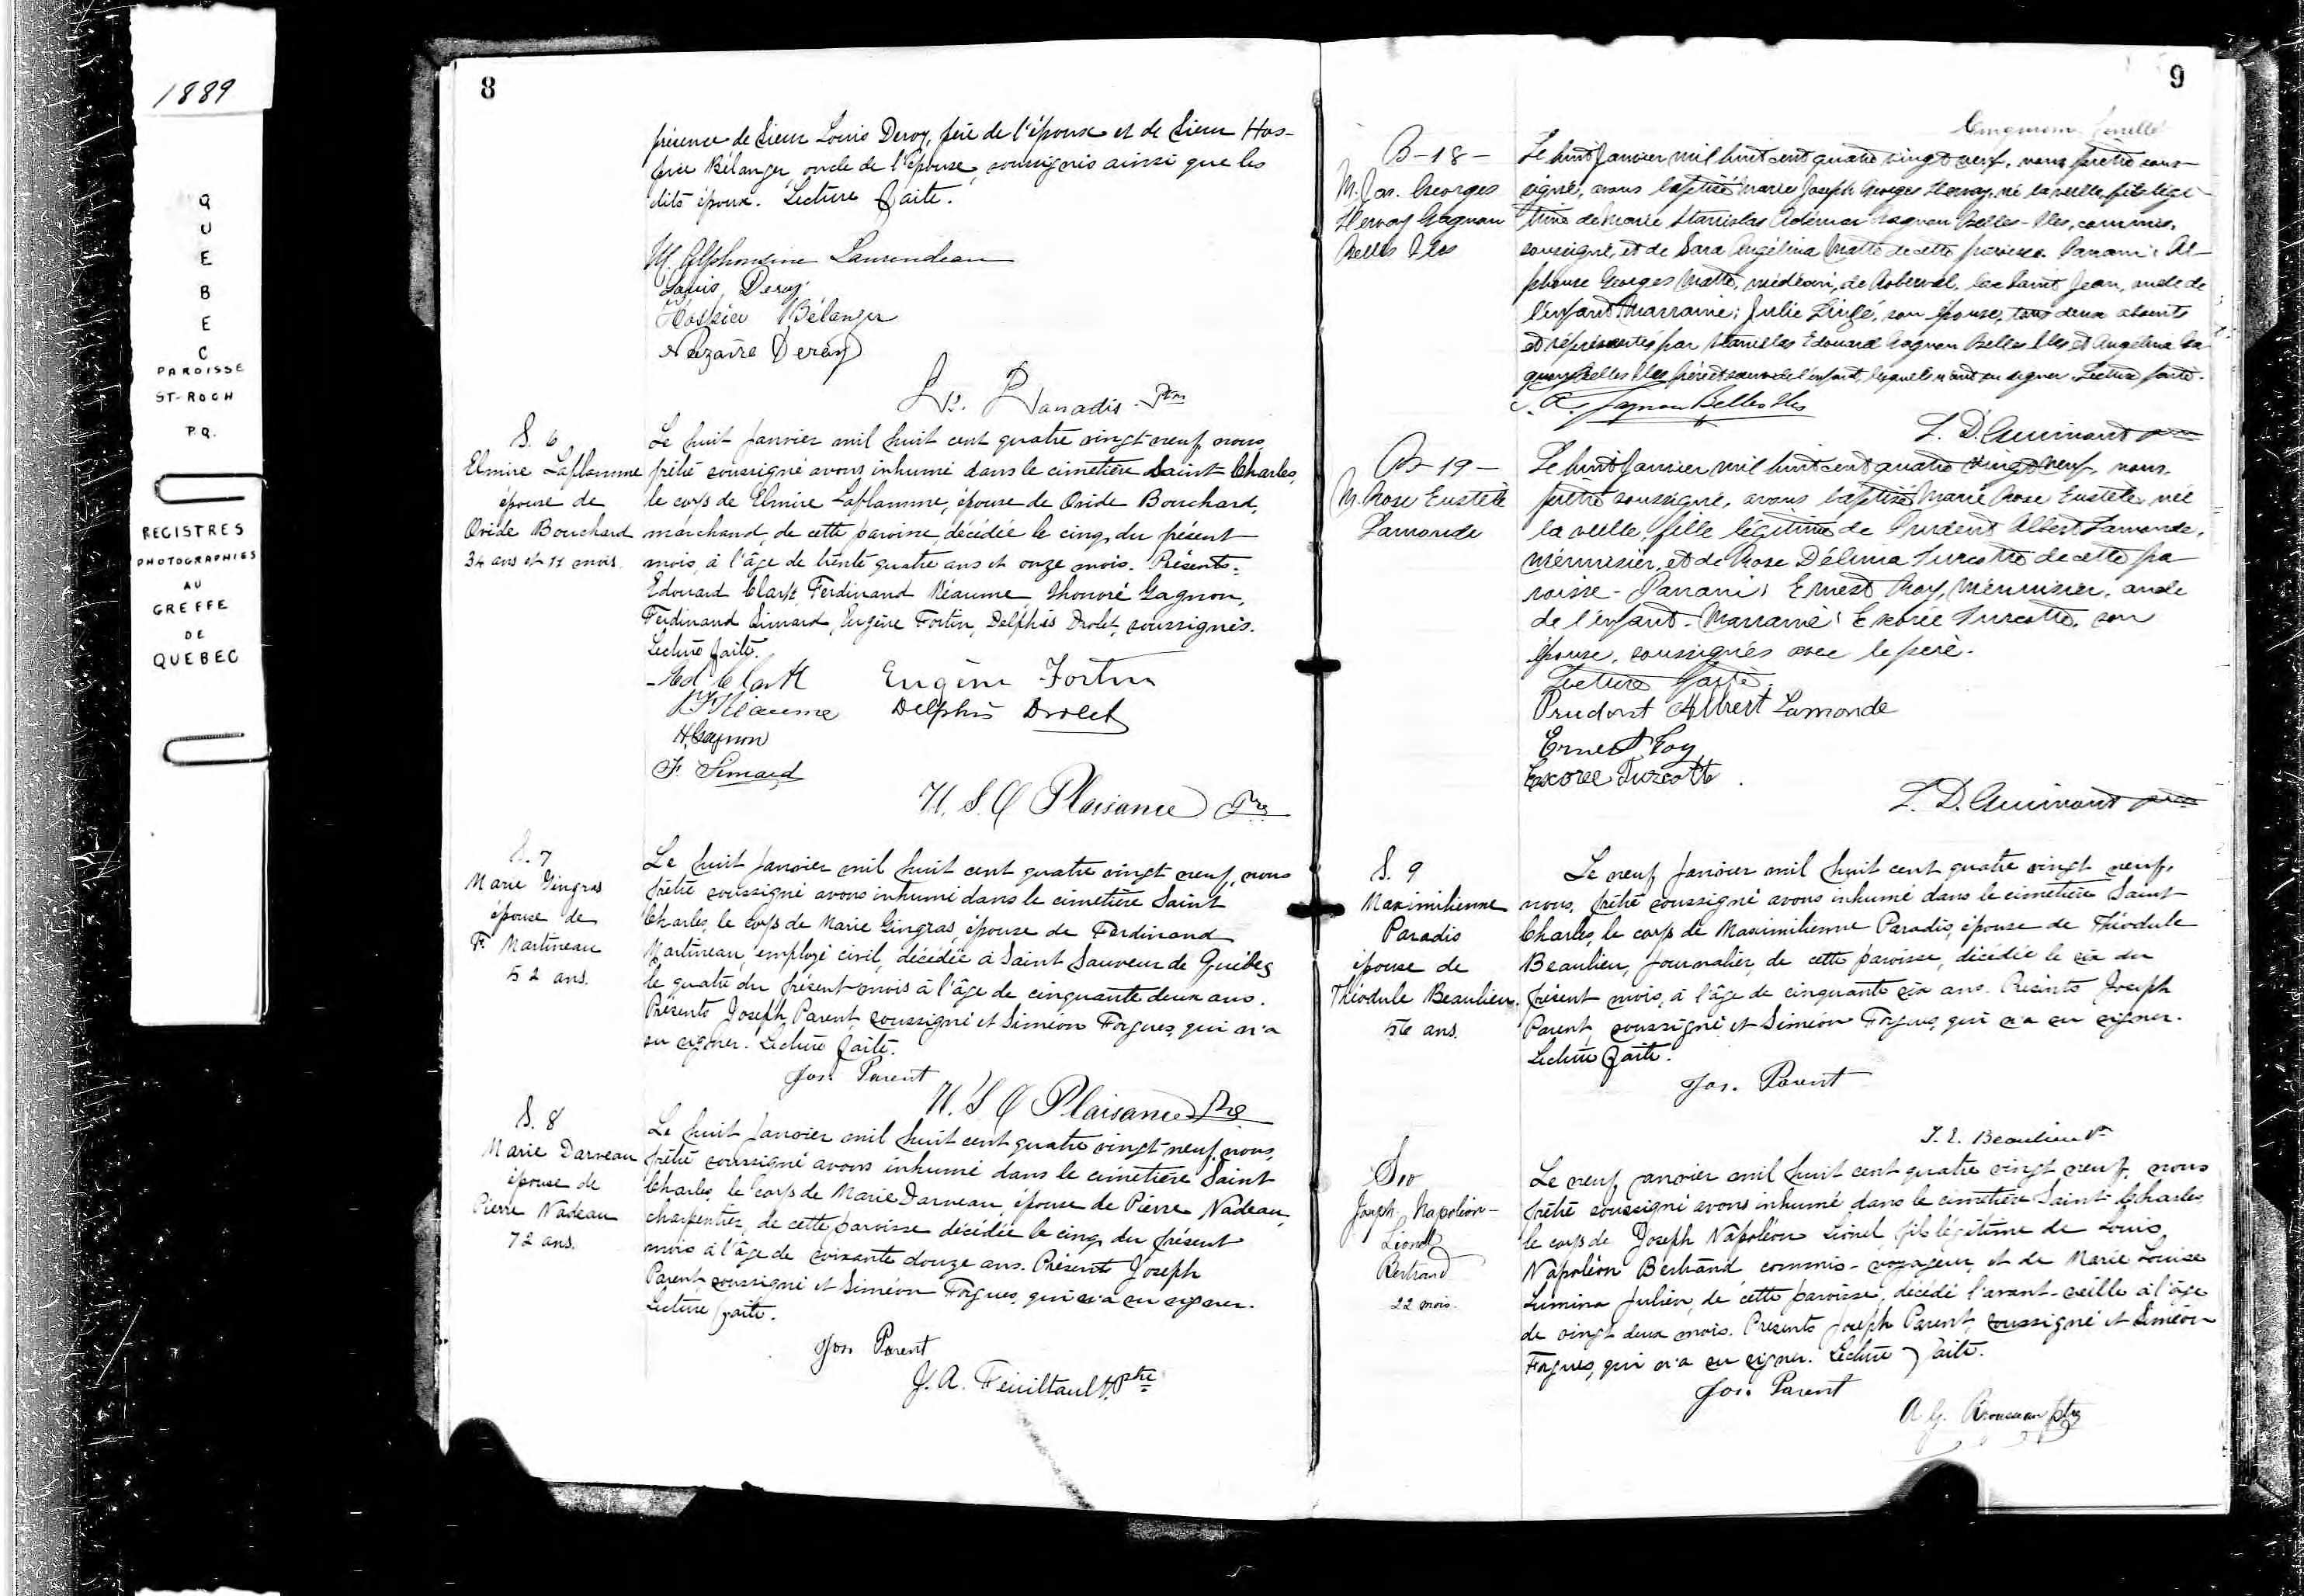 1889
Q
U
E
B
E
C
PAROISSE
ST-ROCH
P.Q.
REGISTRES
PHOTOGRAPHIES
AU
GREFFE
DE
QUEBEC
8
présence de Sieur Louis Deroy, père de l'époux et de Sieur Hos-
pice Bélanger, oncle de l'épouse, soussignés ainsi que les
dits époux. Lecture faite.
M. Alphonsine Laurendeau
Louis Deroy
Hospice Bélanger
Nazaire Deroy
Paradis Ptre
S. 6
Elmire Laflamme
épouse de
Ovide Bouchard
34 ans et 11 mois.
Le huit Janvier mil huit cent quatre vingt-neuf, nous,
prêtre soussigné avons inhumé dans le cimetière Saint-Charles,
le corps de Elmire Laflamme, épouse de Ovide Bouchard,
marchand, de cette paroisse, décédée le cinq du présent
mois, à l'âge de trente quatre ans et onze mois. Présents:
Edouard Clark, Ferdinand Réaume, Honoré Gagnon,
Ferdinand Simard, Eugène Fortin, Delphis Drolet, soussignés.
Lecture faite.
Ed Clark Eugène Fortin
Réaume Delphis Drolet
H. Gagnon
F. Simard
Plaisance Ptre
S. 7
Marie Gingras
épouse de
F. Martineau
52 ans.
Le huit Janvier mil huit cent quatre vingt-neuf, nous
prêtre soussigné avons inhumé dans le cimetière Saint
Charles, le corps de Marie Gingras, épouse de Ferdinand
Martineau, employé civil, décédée à Saint Sauveur de Québec
le quatre du présent mois à l'âge de cinquante deux ans.
Présents Joseph Parent, soussigné et Siméon Forgues, qui n'a
su signer. Lecture faite.
Jos. Parent
Plaisance Ptre
S. 8
Marie Darveau
épouse de
Pierre Nadeau
72 ans.
Le huit Janvier mil huit cent quatre vingt-neuf, nous,
prêtre soussigné avons inhumé dans le cimetière Saint
Charles, le corps de Marie Darveau, épouse de Pierre Nadeau,
charpentier, de cette paroisse décédée le cinq du présent
mois à l'âge de soixante douze ans. Présents Joseph
Parent, soussigné et Siméon Forgues, qui n'a su signer.
Lecture faite.
Jos Parent
J. A. Feuiltault, Ptre
9
B-18-
M. Jos. Georges
Hervay Gagnon
Belles Iles
Le huit Janvier mil huit cent quatre vingt neuf, nous prêtre sous-
signé, avons baptisé Marie Joseph Georges Hervay, né la veille, fils légi-
time de Marie Stanislas Adémar Gagnon Belles-Iles, commis,
soussigné, et de Sara Angélina Matte de cette paroisse. Parrain: Al-
phonse Georges Matte, médecin, de Roberval, Lac Saint Jean, oncle de
l'enfant. Marraine: Julie son épouse, tous deux absents
et représentés par Stanislas Edouard Gagnon Belles Iles et Angélina Ga-
gnon Belles Iles frère et soeur de l'enfant, lesquels n'ont su signer. Lecture faite.
A. Gagnon Belles Iles
L. D. Guimont ptre
B-19-
M. Rose Eustelle
Lamonde
Le huit Janvier mil huit cent quatre vingt neuf, nous,
prêtre soussigné, avons baptisé Marie Rose Eustelle, née
la veille, fille légitime de Prudent Albert Lamonde,
menuisier, et de Rose Délima Turcotte de cette pa
roisse. Parrain: Ernest Roy, menuisier, oncle
de l'enfant. Marraine: Exorée Turcotte, son
épouse, soussignés avec le père.
Lecture faite.
Prudent Albert Lamonde
Ernest Roy
Exoree Turcotte
L. D. Guimont ptre
S. 9
Maximilienne
Paradis
épouse de
Théodule Beaulieu.
56 ans.
Le neuf Janvier mil huit cent quatre vingt neuf,
nous, prêtre soussigné avons inhumé dans le cimetière Saint
Charles, le corps de Maximilienne Paradis, épouse de Théodule
Beaulieu, journalier, de cette paroisse, décédée le six du
présent mois, à l'âge de cinquante six ans. Présents Joseph
Parent, soussigné et Siméon Forgues, qui n'a su signer.
Lecture faite.
Jos. Parent
Beaulieu Ptre
S 10
Joseph Napoléon-
Lionel
Bertrand
22 mois.
Le neuf janvier mil huit cent quatre vingt neuf, nous
prêtre soussigné avons inhumé dans le cimetière Saint-Charles
le corps de Joseph Napoléon Lionel, fils légitime de Louis
Napoléon Bertrand commis-voyageur, et de Marie Louise
Lumina Julien, de cette paroisse, décédé l'avant-veille à l'âge
de vingt deux mois. Présents Joseph Parent, soussigné et Siméon
Forgues, qui n'a su signer. Lecture faite.
Jos. Parent
Rousseau ptre